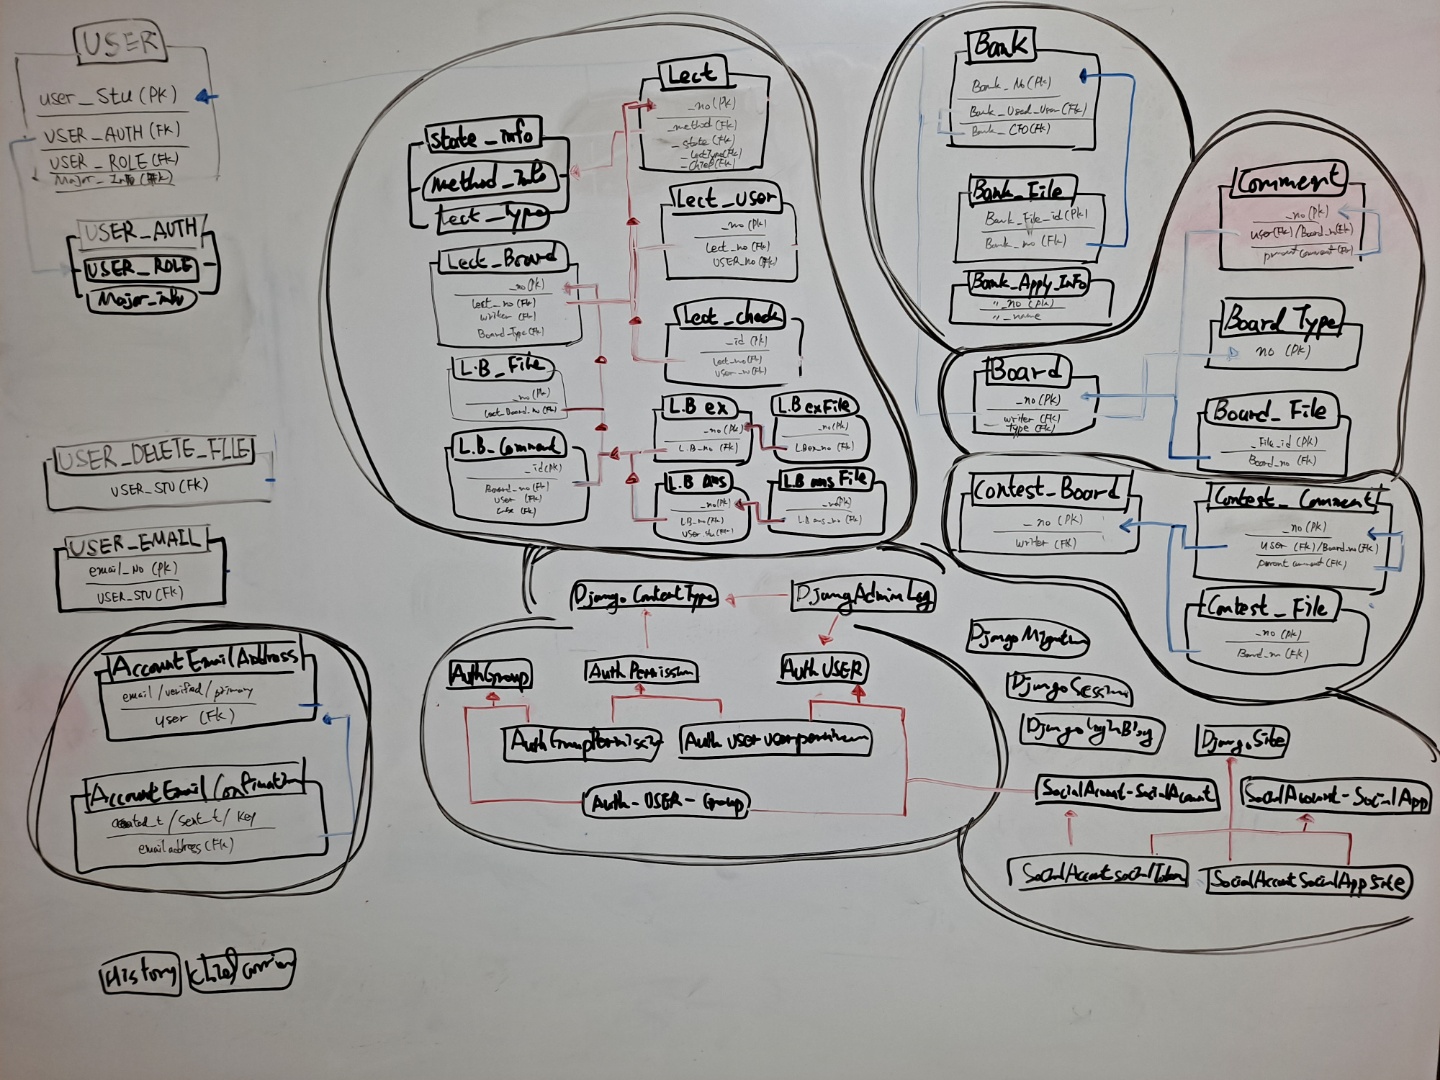 USER
user_Stu (PK)
USER_AUTH (FK)
USER_ROLE (FK)
Major_Info (FK)
USER_AUTH
USER_ROLE
Major_info
USER_DELETE_FILE
USER_STU (FK)
USER_EMAIL
email_No (PK)
USER_STU (FK)
AccountEmailAddress
email / verified / primary
user (FK)
AccountEmailConfirmation
created_t / sent_t / key
emailaddress (FK)
History
state_info
method_info
Lect_Type
Lect
_no (PK)
_method (FK)
_state (FK)
_LectType (FK)
_chief (FK)
Lect_user
_no (PK)
Lect_no (FK)
USER_no (FK)
Lect_Board
_no (PK)
Lect_no (FK)
writer (FK)
Board_Type (FK)
Lect_check
_id (PK)
Lect_no (FK)
user_no (FK)
L.B_File
_no (PK)
Lect_Board_no (FK)
L.B_Command
_id (PK)
Board_no (FK)
user (FK)
L.B ex
_no (PK)
L.B_no (FK)
L.B exFile
_no (PK)
L.Bex_no (FK)
L.B Ans
_no (PK)
L.B_no (FK)
L.B ans File
_no (PK)
L.B ans_no (FK)
Bank
Bank_No (PK)
Bank_Used_User (FK)
Bank_CFO (FK)
Bank_File
Bank_File_id (PK)
Bank_no (FK)
Bank_Apply_Info
"_no (PK)
"_name
Comment
_no (PK)
user (FK) / Board_no (FK)
parent comment (FK)
Board Type
no (PK)
Board
_no (PK)
_writer (FK)
type (FK)
Board_File
_File_id (PK)
Board_no (FK)
Contest_Board
_no (PK)
writer (FK)
Contest_Comment
_no (PK)
user (FK) / Board_no (FK)
parent comment (FK)
Contest_File
_no (PK)
Board_no (FK)
Django ContentType
DjangoAdminLog
AuthGroup
AuthPermission
AuthUSER
AuthGroupPermission
Auth user userpermission
Auth-USER-Group
DjangoMigration
DjangoSession
DjangoSite
SocialAccount-SocialAccount
SocialAccount-SocialApp
SocialAccountsocialToken
SocialAccountSocialAppSite